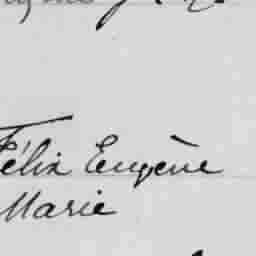 Félix Eugène
Marie